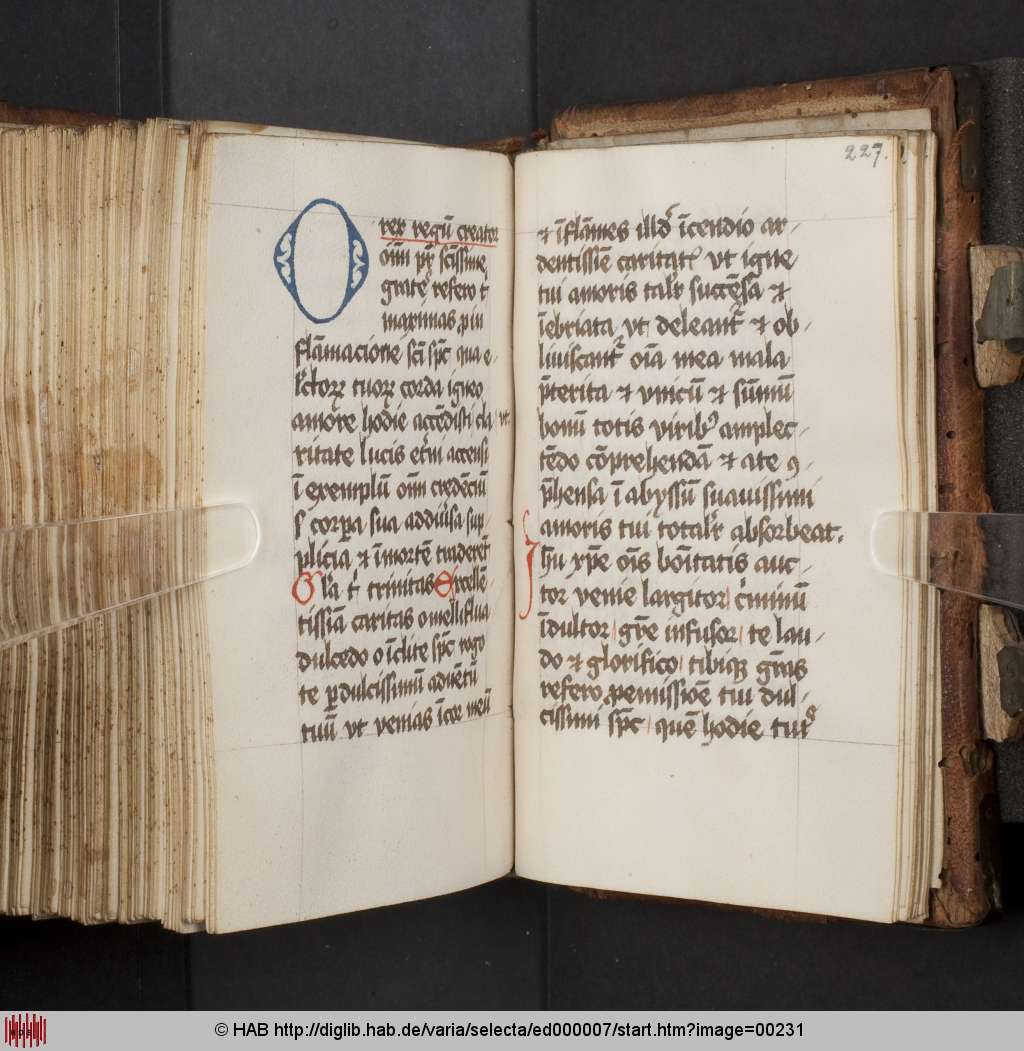 O rex regū creator
oīm pr̄ scīssime
grates refero t
maximas pin
flāmacione scī spc̄ qua e
lc̄torꝝ tuorꝝ corda igneo
amore hodie accēdisti cla ut
ritate lucis etn̄i accensi
ī exemplū oīm credēciū
corꝑa sua addūsa sup
plicia ⁊ ī mortē traderēt
Gl̄a t' trinitas Excellē
tissīa caritas o melliflua
dulcedo o īclite spc̄ rogo
te p dulcissimū aduētū
tuū vt venias ī cor meū
227.
⁊ īflāmes illd' īcendio ar
dentissīe caritatꝭ vt igne
tui amoris talr̄ succēsa ⁊
īebriata vt deleant᷑ ⁊ ob
liuiscant᷑ oīa mea mala
p̄terita ⁊ vnicū ⁊ sūmū
bonū totis viribꝰ amplec
tēdo cōprehendā ⁊ a te ꝯ
p̄hensa ī abyssū suauissimi
amoris tui totalr̄ absorbeat.
Jhū xp̄e oīs bōitatis auc
tor venie largitor c̄minū
īdultor gr̄e infusor te lau
do ⁊ glorifico tibiqꝫ gr̄as
refero ꝓ emissiōe tui dul
cissimi spc̄ quē hodie tuis
© HAB http://diglib.hab.de/varia/selecta/ed000007/start.htm?image=00231